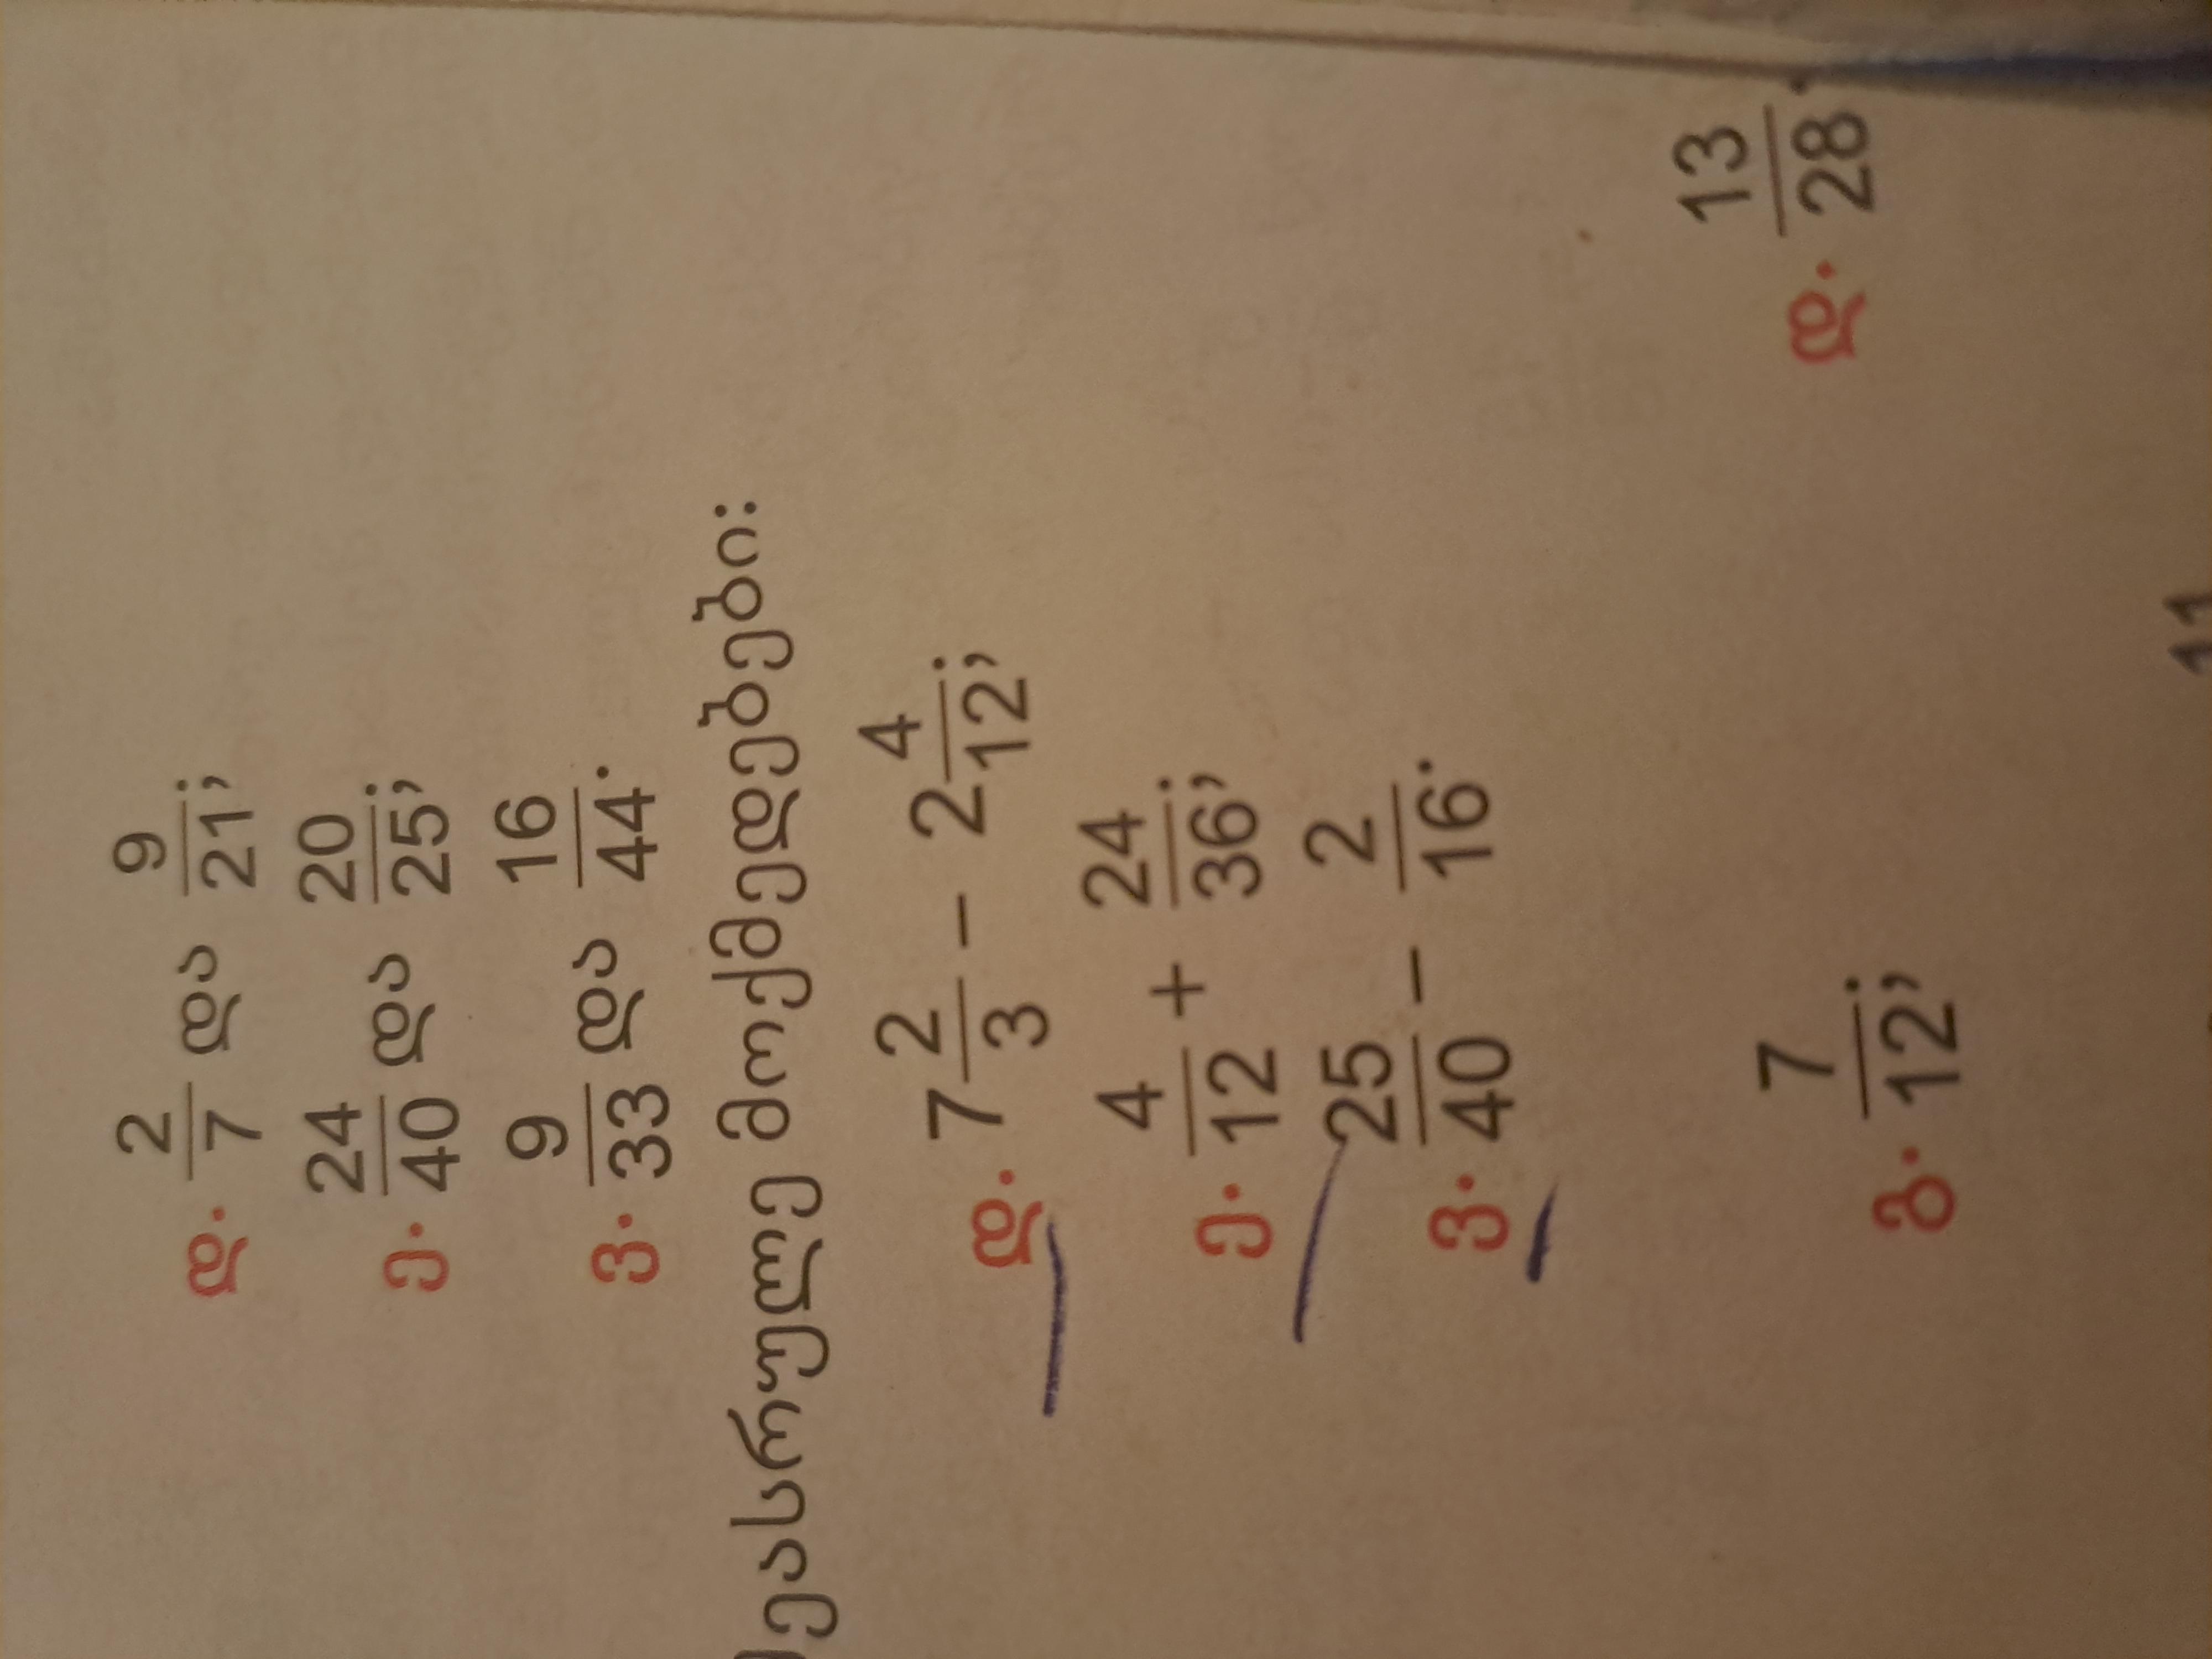 დ. 2/7 და 9/21;
ე. 24/40 და 20/25;
ვ. 9/33 და 16/44.
ეასრულე მოქმედებები:
დ. 7 2/3 - 2 4/12;
ე. 4/12 + 24/36;
ვ. 25/40 - 2/16.
გ. 7/12; დ. 13/28.
11